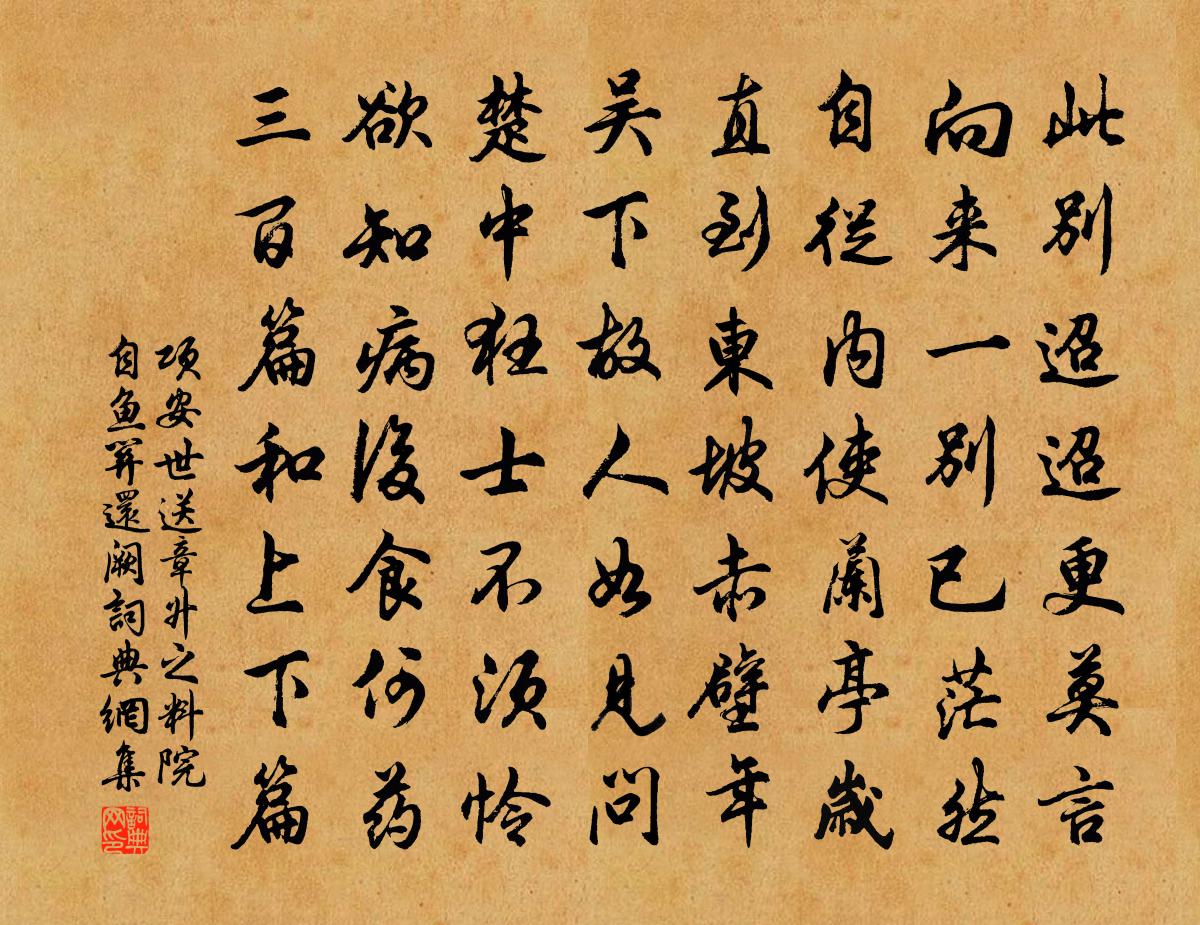 此别迢迢更莫言
向来一别已茫然
自從内使蘭亭歲
直到東坡赤壁年
吴下故人如見問
楚中狂士不須怜
欲知病後食何药
三百篇和上下篇
项安世送章升之料院
自鱼還阙詞典網集
詞典网印